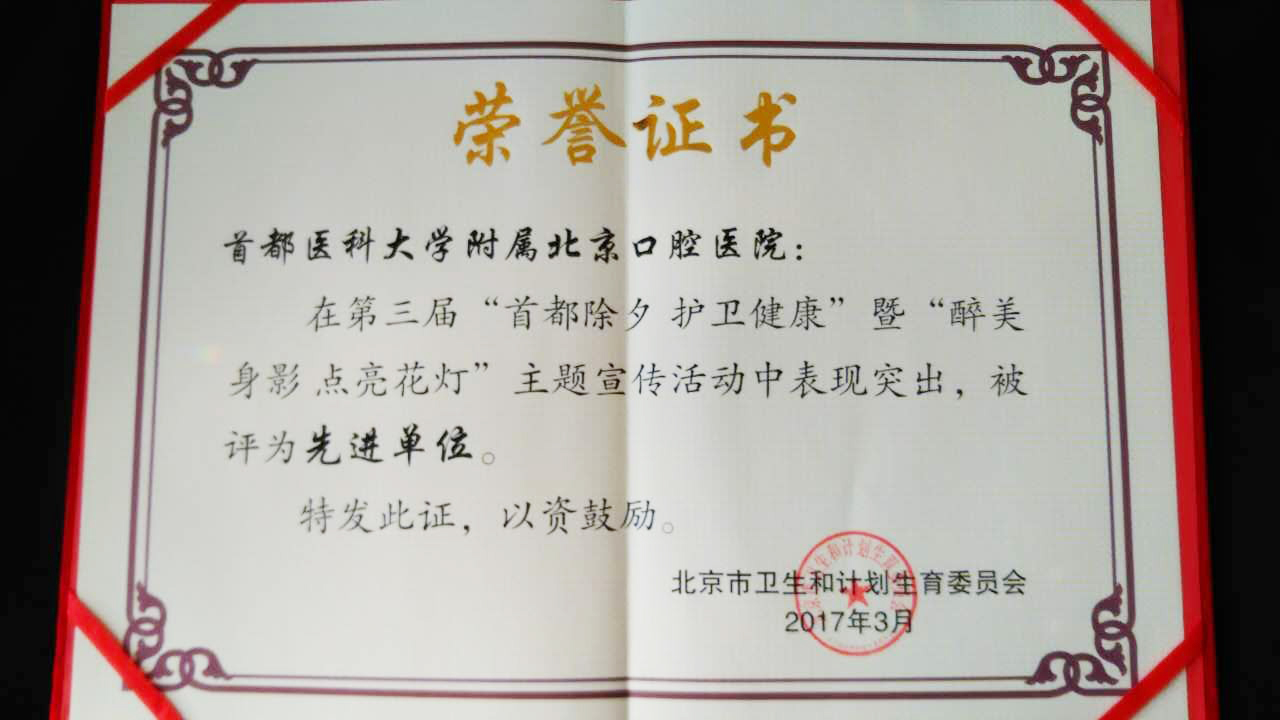 荣誉证书
首都医科大学附属北京口腔医院：
在第三届“首都除夕 护卫健康”暨“醉美
身影 点亮花灯”主题宣传活动中表现突出，被
评为先进单位。
特发此证，以资鼓励。
北京市卫生和计划生育委员会
2017年3月